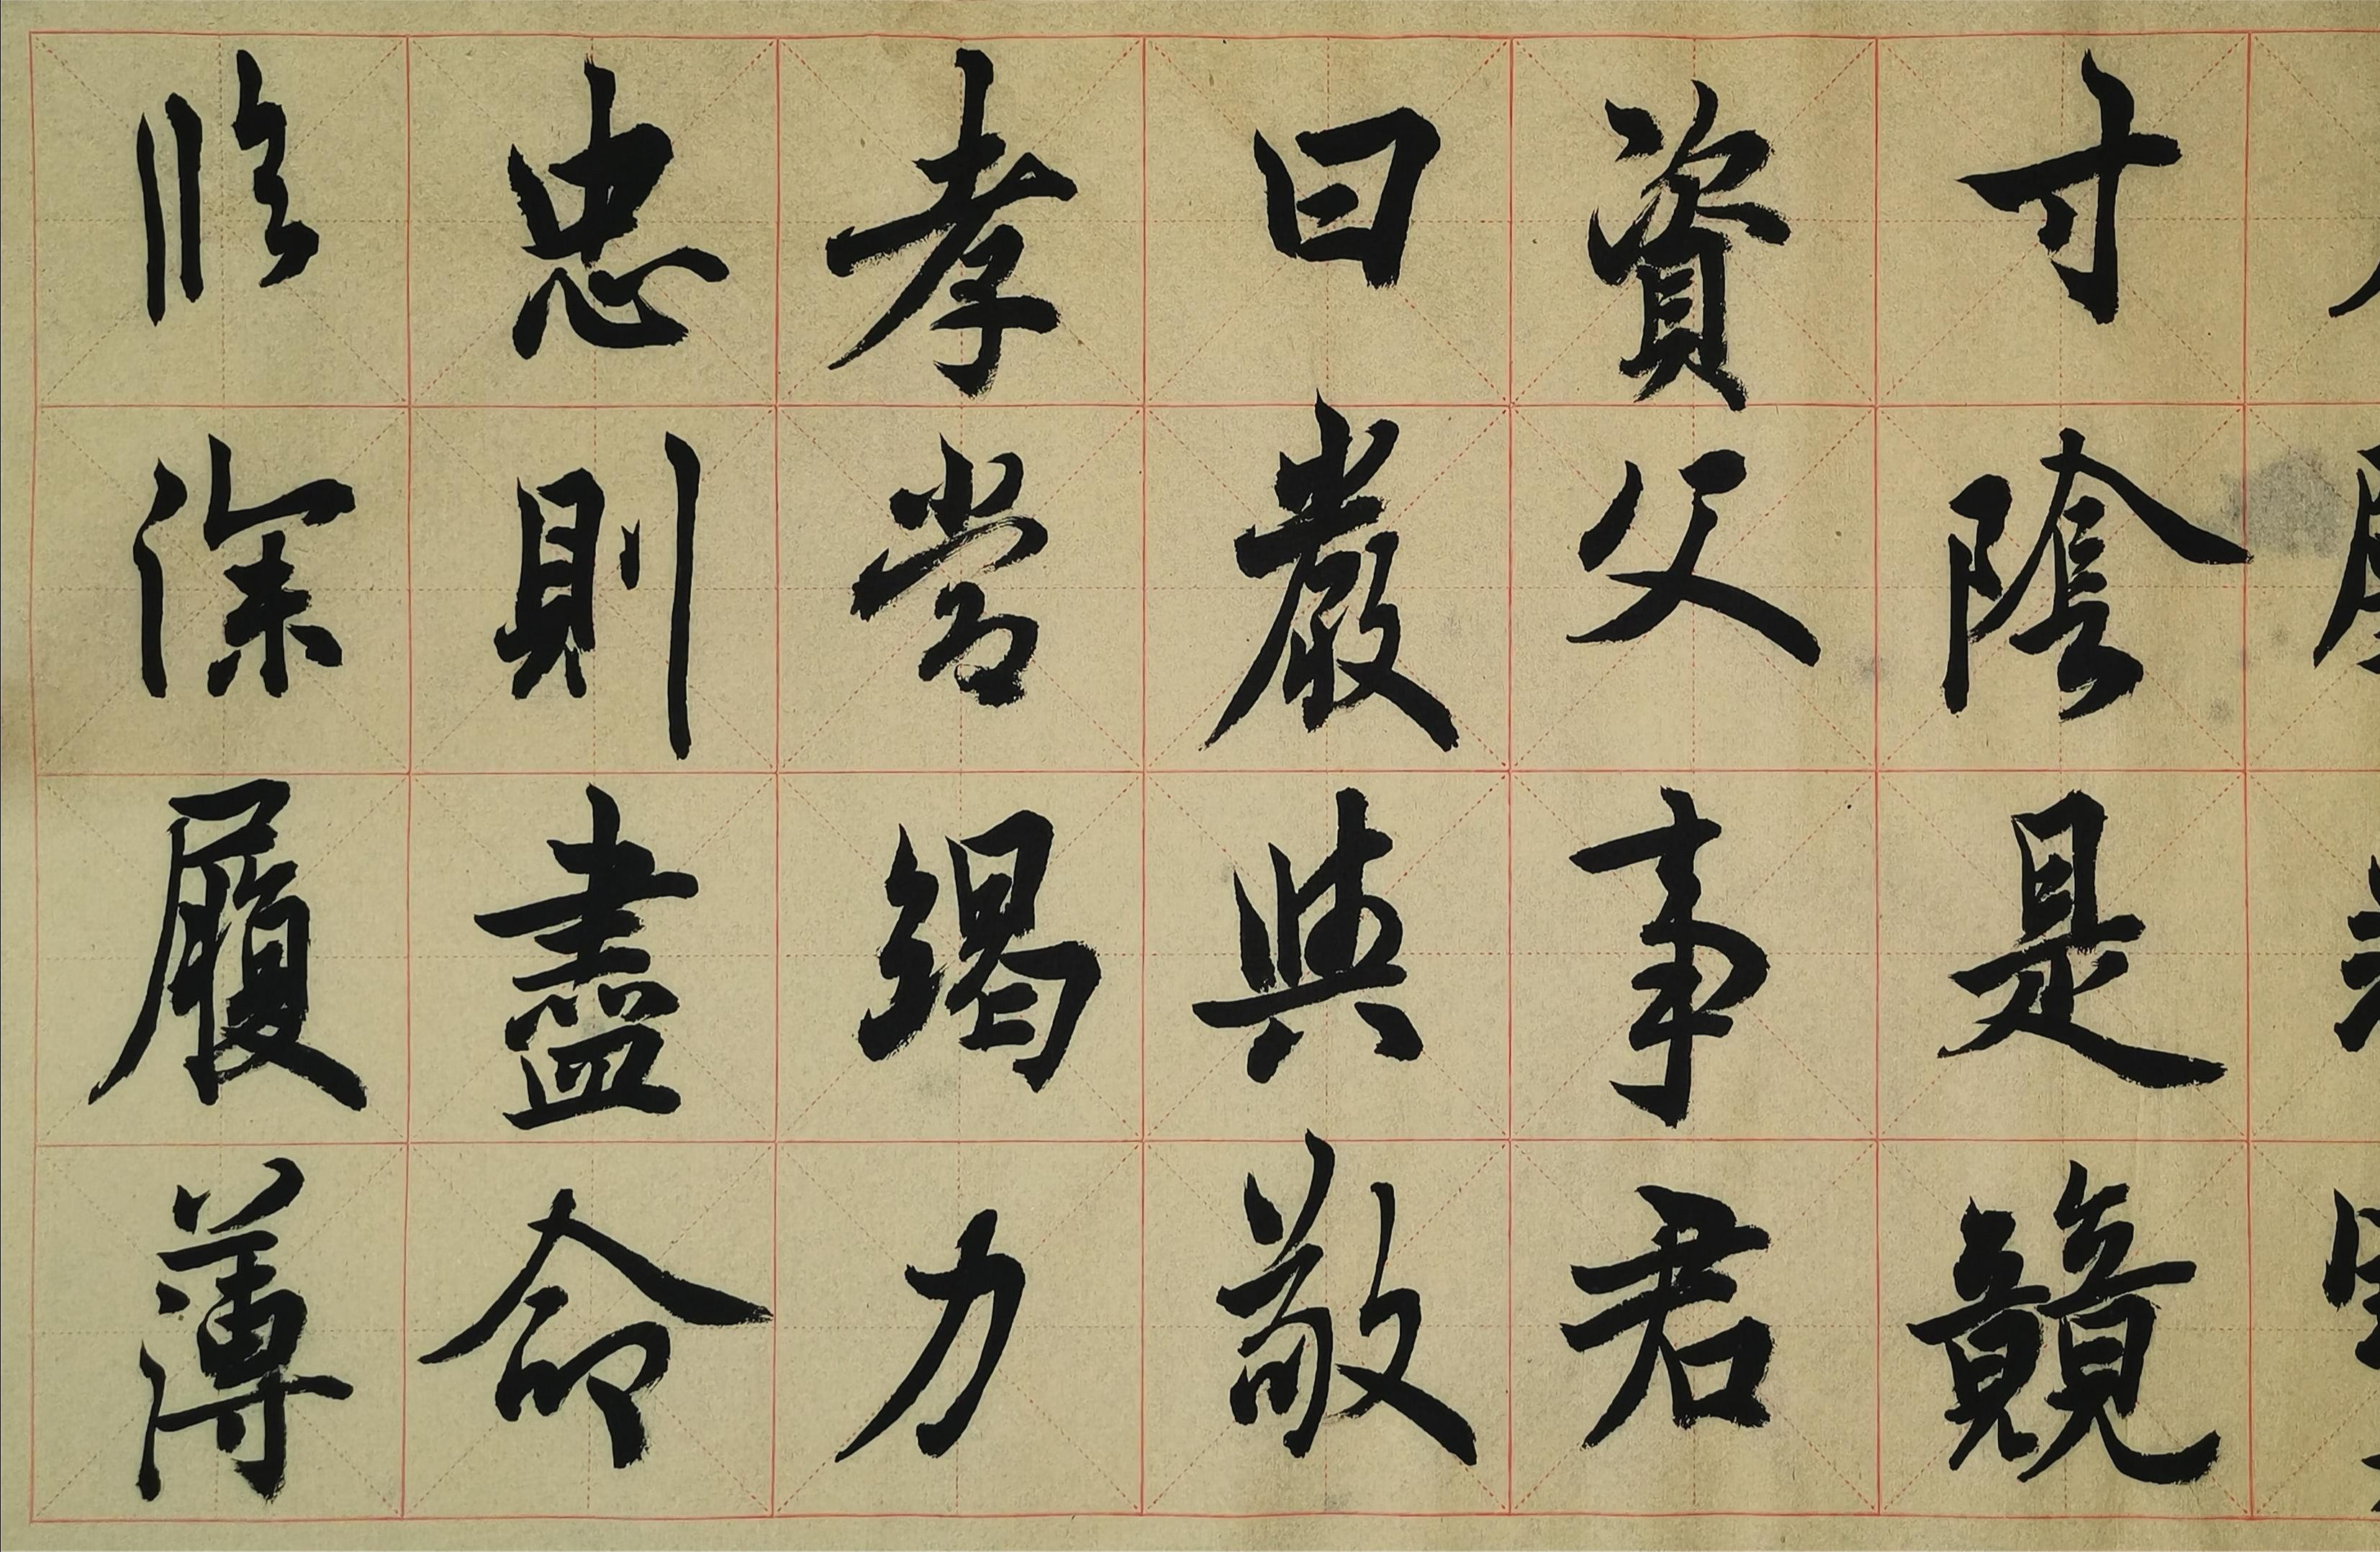 寸陰是競
資父事君
曰嚴與敬
孝當竭力
忠則盡命
臨深履薄